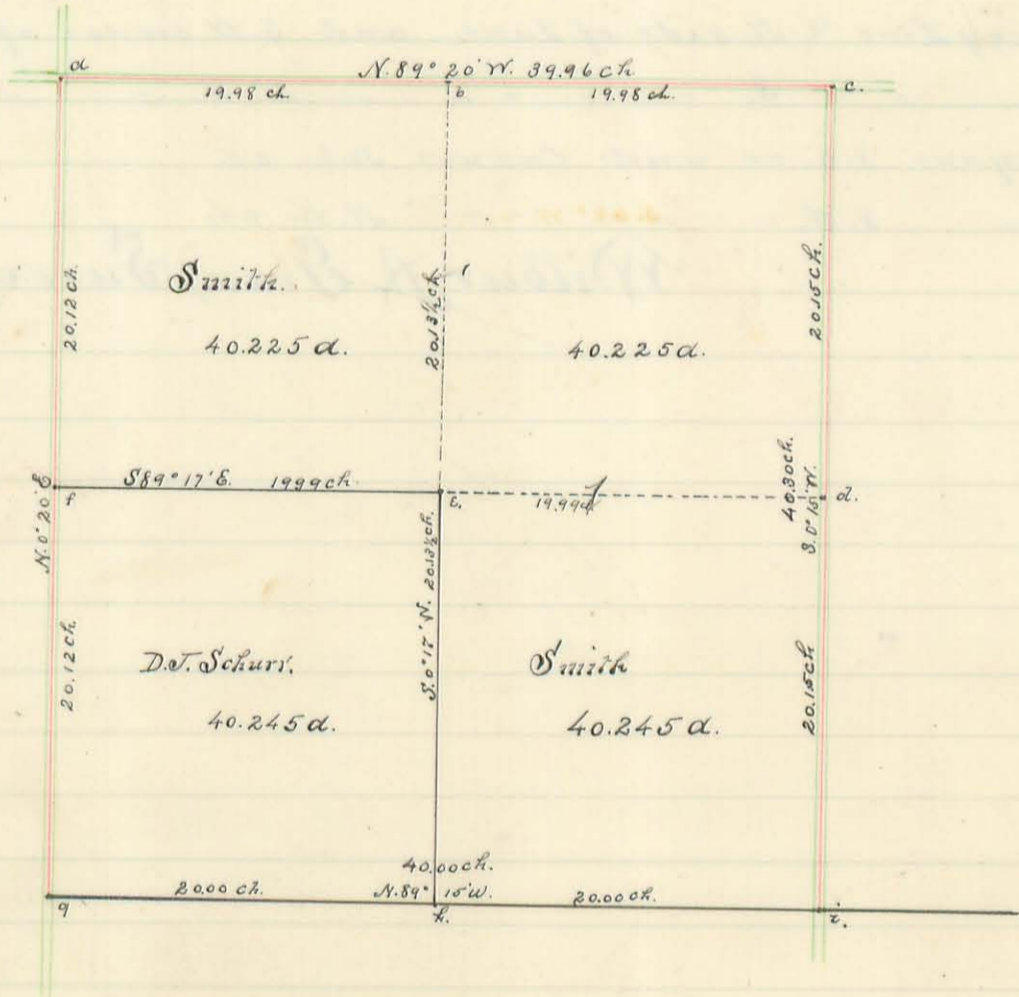 a
N. 89° 20' W. 39.96 ch
19.98 ch.
b
19.98 ch.
c.
20.12 ch.
Smith.
40.225 a.
20.13½ ch.
40.225 a.
20.15 ch.
N. 0° 20' E
f
S 89° 17' E. 19.99 ch.
E.
19.99 ch
40.30 ch.
S. 0° 15' W.
d.
20.12 ch
D.J. Schurr.
40.245 a.
S. 0° 17' W. 20.13½ ch.
Smith
40.245 a.
20.15 ch
g
20.00 ch.
40.00 ch.
N. 89° 15' W.
h.
20.00 ch.
i.